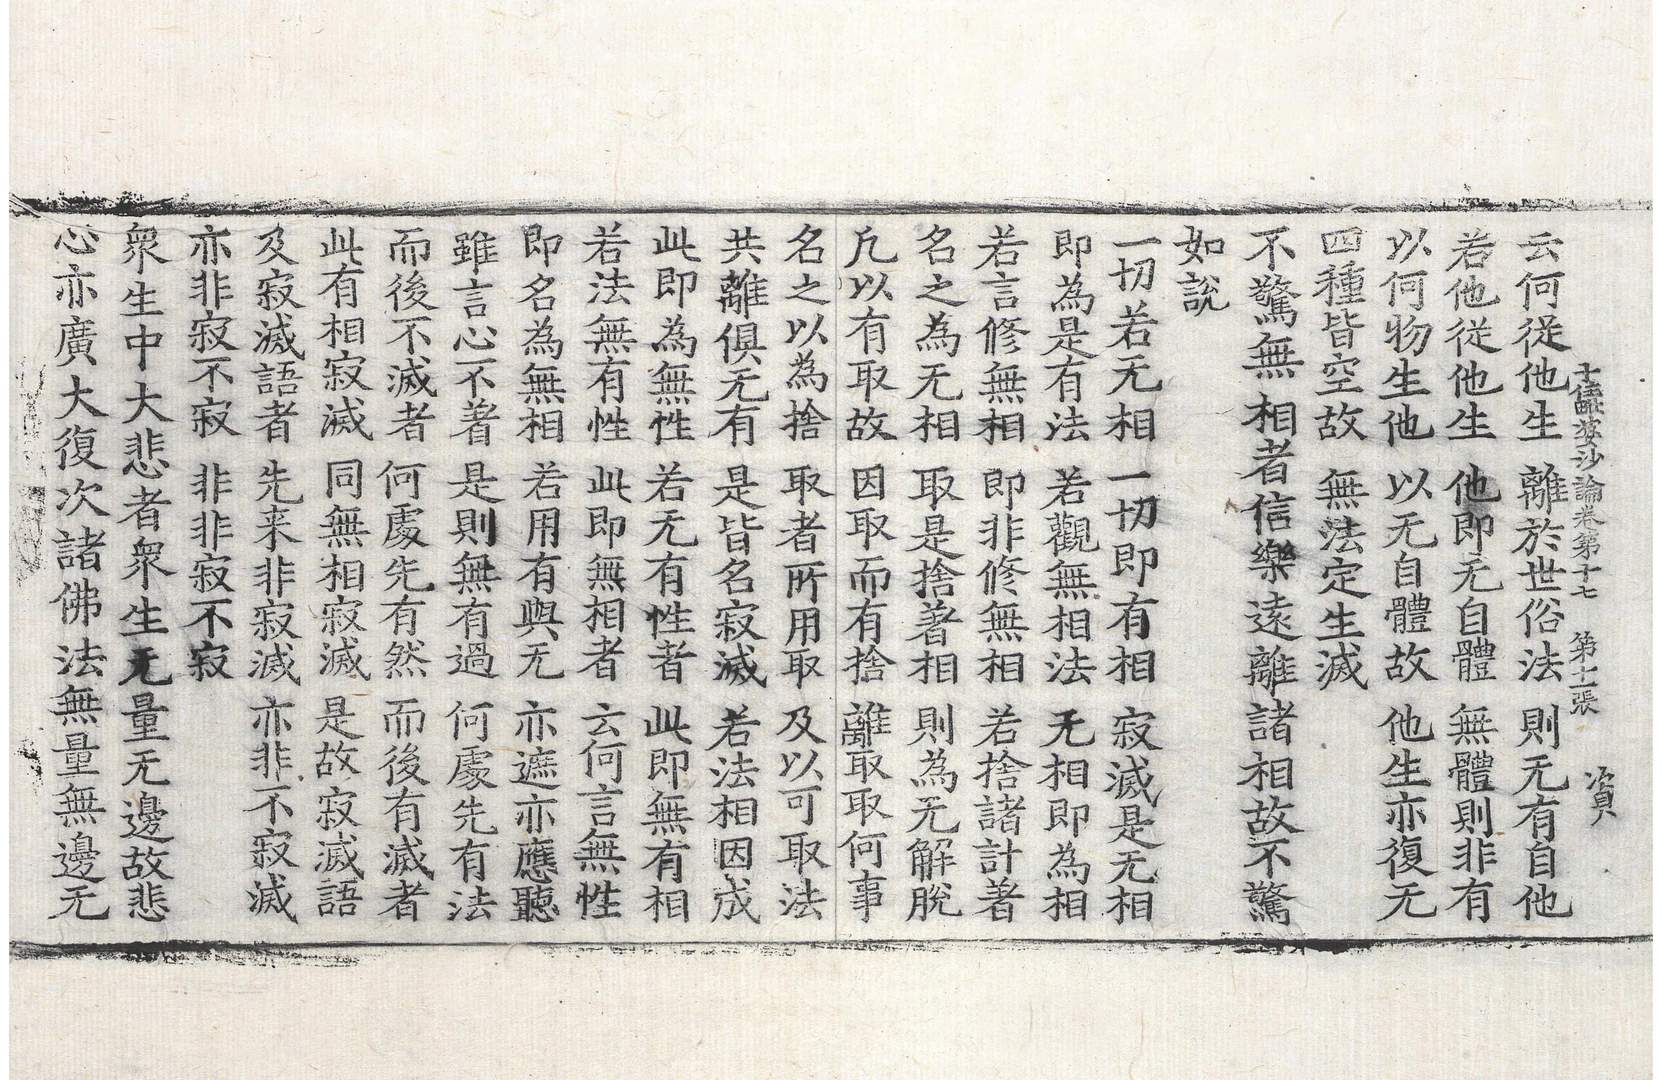 十住毗婆沙論卷第十七　第十一張　資
云何從他生　離於世俗法　則无有自他
若他從他生　他即无自體　無體則非有
以何物生他　以无自體故　他生亦復无
四種皆空故　無法定生滅
不驚無相者信樂遠離諸相故不驚
如說
一切若无相　一切即有相　寂滅是无相
即為是有法　若觀無相法　无相即為相
若言修無相　即非修無相　若捨諸計著
名之為无相　取是捨著相　則為无解脫
凡以有取故　因取而有捨　離取取何事
名之以為捨　取者所用取　及以可取法
共離俱无有　是皆名寂滅　若法相因成
此即為無性　若无有性者　此即無有相
若法無有性　此即無相者　云何言無性
即名為無相　若用有與无　亦遮亦應聽
雖言心不著　是則無有過　何處先有法
而後不滅者　何處先有然　而後有滅者
此有相寂滅　同無相寂滅　是故寂滅語
及寂滅語者　先来非寂滅　亦非不寂滅
亦非寂不寂　非非寂不寂
衆生中大悲者衆生无量无邊故悲
心亦廣大復次諸佛法無量無邊无